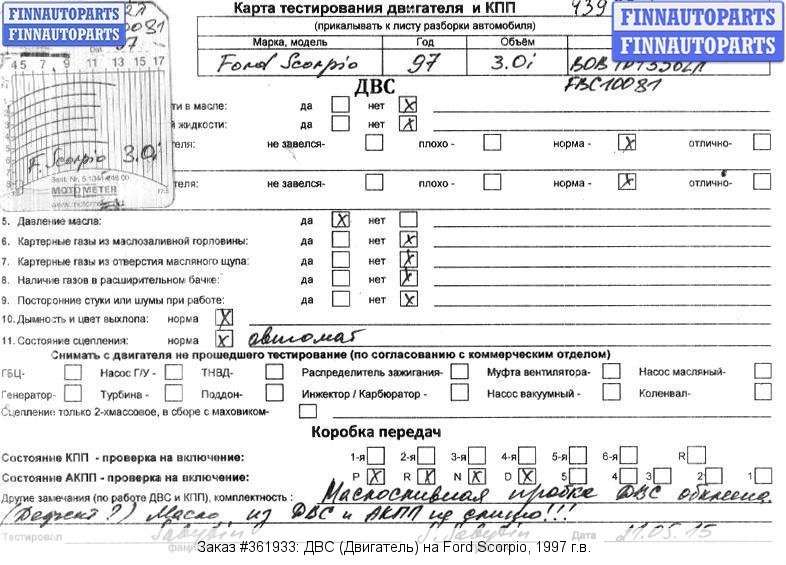 Карта тестирования двигателя и КПП
FINNAUTOPARTS
FINNAUTOPARTS
FINNAUTOPARTS
FINNAUTOPARTS
(прикалывать к листу разборки автомобиля)
Марка, модель Год Объём
Ford Scorpio 97 3.0i
FBC10081
97
45 7 9 11 13 15 17
F. Scorpio 3.0i
MOTOMETER
ДВС
ти в масле: да нет X
жидкости: да нет X
теля: не завелся- плохо - норма - X отлично-
теля: не завелся- плохо - норма - X отлично-
5. Давление масла: да X нет
6. Картерные газы из маслозаливной горловины: да нет X
7. Картерные газы из отверстия масляного щупа: да нет X
8. Наличие газов в расширительном бачке: да нет X
9. Посторонние стуки или шумы при работе: да нет X
10. Дымность и цвет выхлопа: норма X
11. Состояние сцепления: норма X автомат
Снимать с двигателя не прошедшего тестирование (по согласованию с коммерческим отделом)
ГБЦ- Насос Г/У - ТНВД- Распределитель зажигания- Муфта вентилятора- Насос масляный-
Генератор- Турбина - Поддон- Инжектор / Карбюратор - Насос вакуумный - Коленвал-
Сцепление только 2-хмассовое, в сборе с маховиком-
Коробка передач
Состояние КПП - проверка на включение: 1-я 2-я 3-я 4-я 5-я 6-я R
Состояние АКПП - проверка на включение: P X R X N X D X 5 4 3 2 1
Другие замечания (по работе ДВС и КПП), комплектность : Маслосливная пробка ДВС обклеена.
(Дефект?) Масло из ДВС и АКПП не слито!!!
Тестировал Sabybin Дата 21.05.15
Заказ #361933: ДВС (Двигатель) на Ford Scorpio, 1997 г.в.